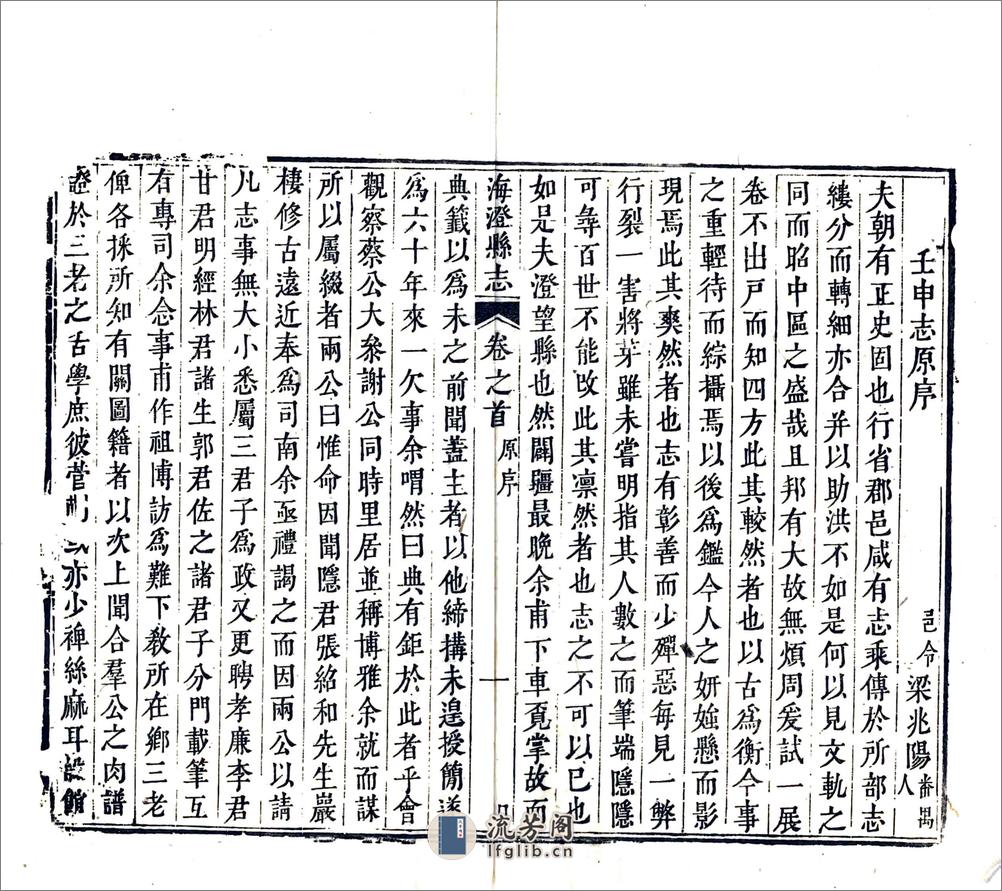 壬申志原序
邑令梁兆陽番禺人
夫朝有正史固也行省郡邑咸有志乘傳於所部志
縷分而轉細亦合并以助洪不如是何以見文軌之
同而昭中區之盛哉且邦有大故無煩周爰試一展
卷不出戸而知四方此其較然者也以古為衡今事
之重輕待而綜攝焉以後為鑑今人之妍媸懸而影
現焉此其爽然者也志有彰善而少殫惡每見一弊
行裂一害將芽雖未嘗明指其人數之而筆端隱隱
可等百世不能改此其凛然者也志之不可以已也
如是夫澄望縣也然闢疆最晚余甫下車覔掌故而
海澄縣志
卷之首
原序
一
典籤以為未之前聞蓋主者以他締搆未遑授簡遂
為六十年來一欠事余喟然曰典有鉅於此者乎會
觀察蔡公大叅謝公同時里居並稱博雅余就而謀
所以屬綴者兩公曰惟命因聞隱君張紹和先生巖
棲修古遠近奉為司南余亟禮謁之而因兩公以請
凡志事無大小悉屬三君子為政又更聘孝廉李君
甘君明經林君諸生郭君佐之諸君子分門載筆互
有專司余念事甫作祖博訪為難下敎所在鄉三老
俾各採所知有關圖籍者以次上聞合羣公之肉譜
證於三老之舌學庶彼菅亦少裨絲麻耳設舘
流芳阁
lfglib.cn